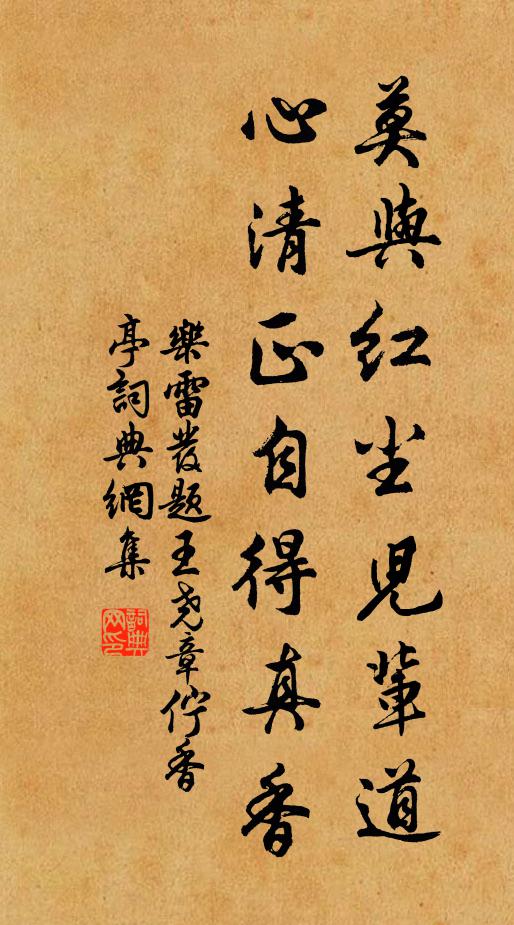 莫與紅尘児輩道
心清正自得真香
樂雷發題王尧章佇香
亭詞典網集
詞典
网印